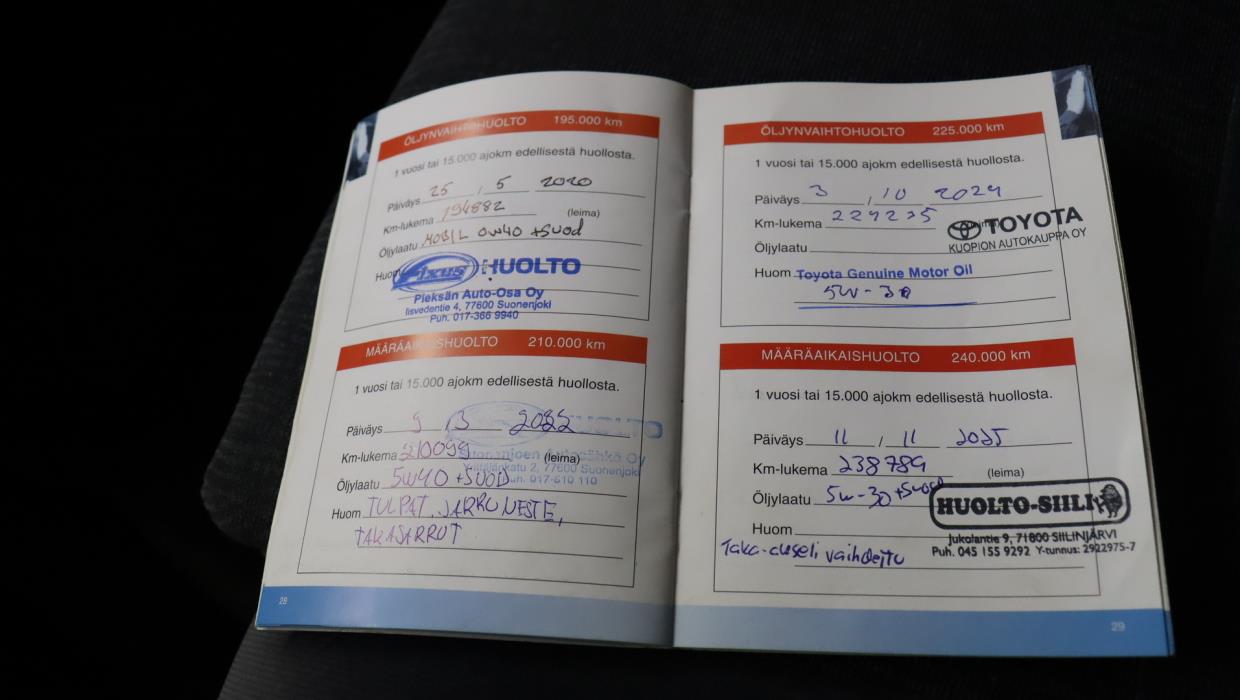 ÖLJYNVAIHTOHUOLTO 195.000 km
1 vuosi tai 15.000 ajokm edellisestä huollosta.
Päiväys 25 , 5 2020
Km-lukema 194882 (leima)
Öljylaatu MOBIL 0W40 +SUOD
Huom
Fixus HUOLTO
Pieksän Auto-Osa Oy
Iisvedentie 4, 77600 Suonenjoki
Puh. 017-366 9940
MÄÄRÄAIKAISHUOLTO 210.000 km
1 vuosi tai 15.000 ajokm edellisestä huollosta.
Päiväys 9 / 3 2022
HUOLTO
Km-lukema 210099 (leima)
Autosähkö Oy
2, 77600 Suonenjoki
Öljylaatu 5W40 +SUOD
Puh. 017-510 110
Huom TULPAT, JARRUNESTE,
TAKAJARRUT
28
ÖLJYNVAIHTOHUOLTO 225.000 km
1 vuosi tai 15.000 ajokm edellisestä huollosta.
Päiväys 3 , 10 2024
Km-lukema 224235
TOYOTA
KUOPION AUTOKAUPPA OY
Öljylaatu
Huom Toyota Genuine Motor Oil
5W-30
MÄÄRÄAIKAISHUOLTO 240.000 km
1 vuosi tai 15.000 ajokm edellisestä huollosta.
Päiväys 11 / 11 2025
Km-lukema 238789 (leima)
Öljylaatu 5W-30 +suod
HUOLTO-SIILI
Huom
Jukolantie 9, 71800 SIILINJÄRVI
Puh. 045 155 9292 Y-tunnus: 2922975-7
Taka-akseli vaihdettu
29